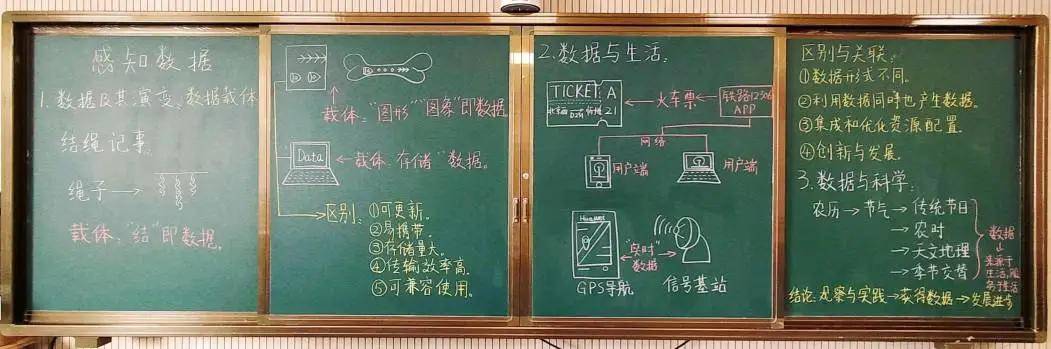 感知数据
1.数据及其演变、数据载体
结绳记事
绳子→
载体："结"即数据。
载体："图形""图象"即数据
Data
载体：存储"数据。
区别：①可更新。
②易携带。
③存储量大。
④传输效率高。
⑤可兼容使用。
2.数据与生活：
TICKET:A
21
火车票
铁路12306
APP
网络
用户端
用户端
Huawei
"实时"
数据
GPS导航
信号基站
区别与关联：
①数据形式不同。
②利用数据同时也产生数据。
③集成和优化资源配置
④创新与发展。
3.数据与科学：
农历→节气→传统节日
→农时
→天文地理
→季节交替
数据
来源于
生活,服
务于生活
结论：观察与实践→获得数据→发展进步